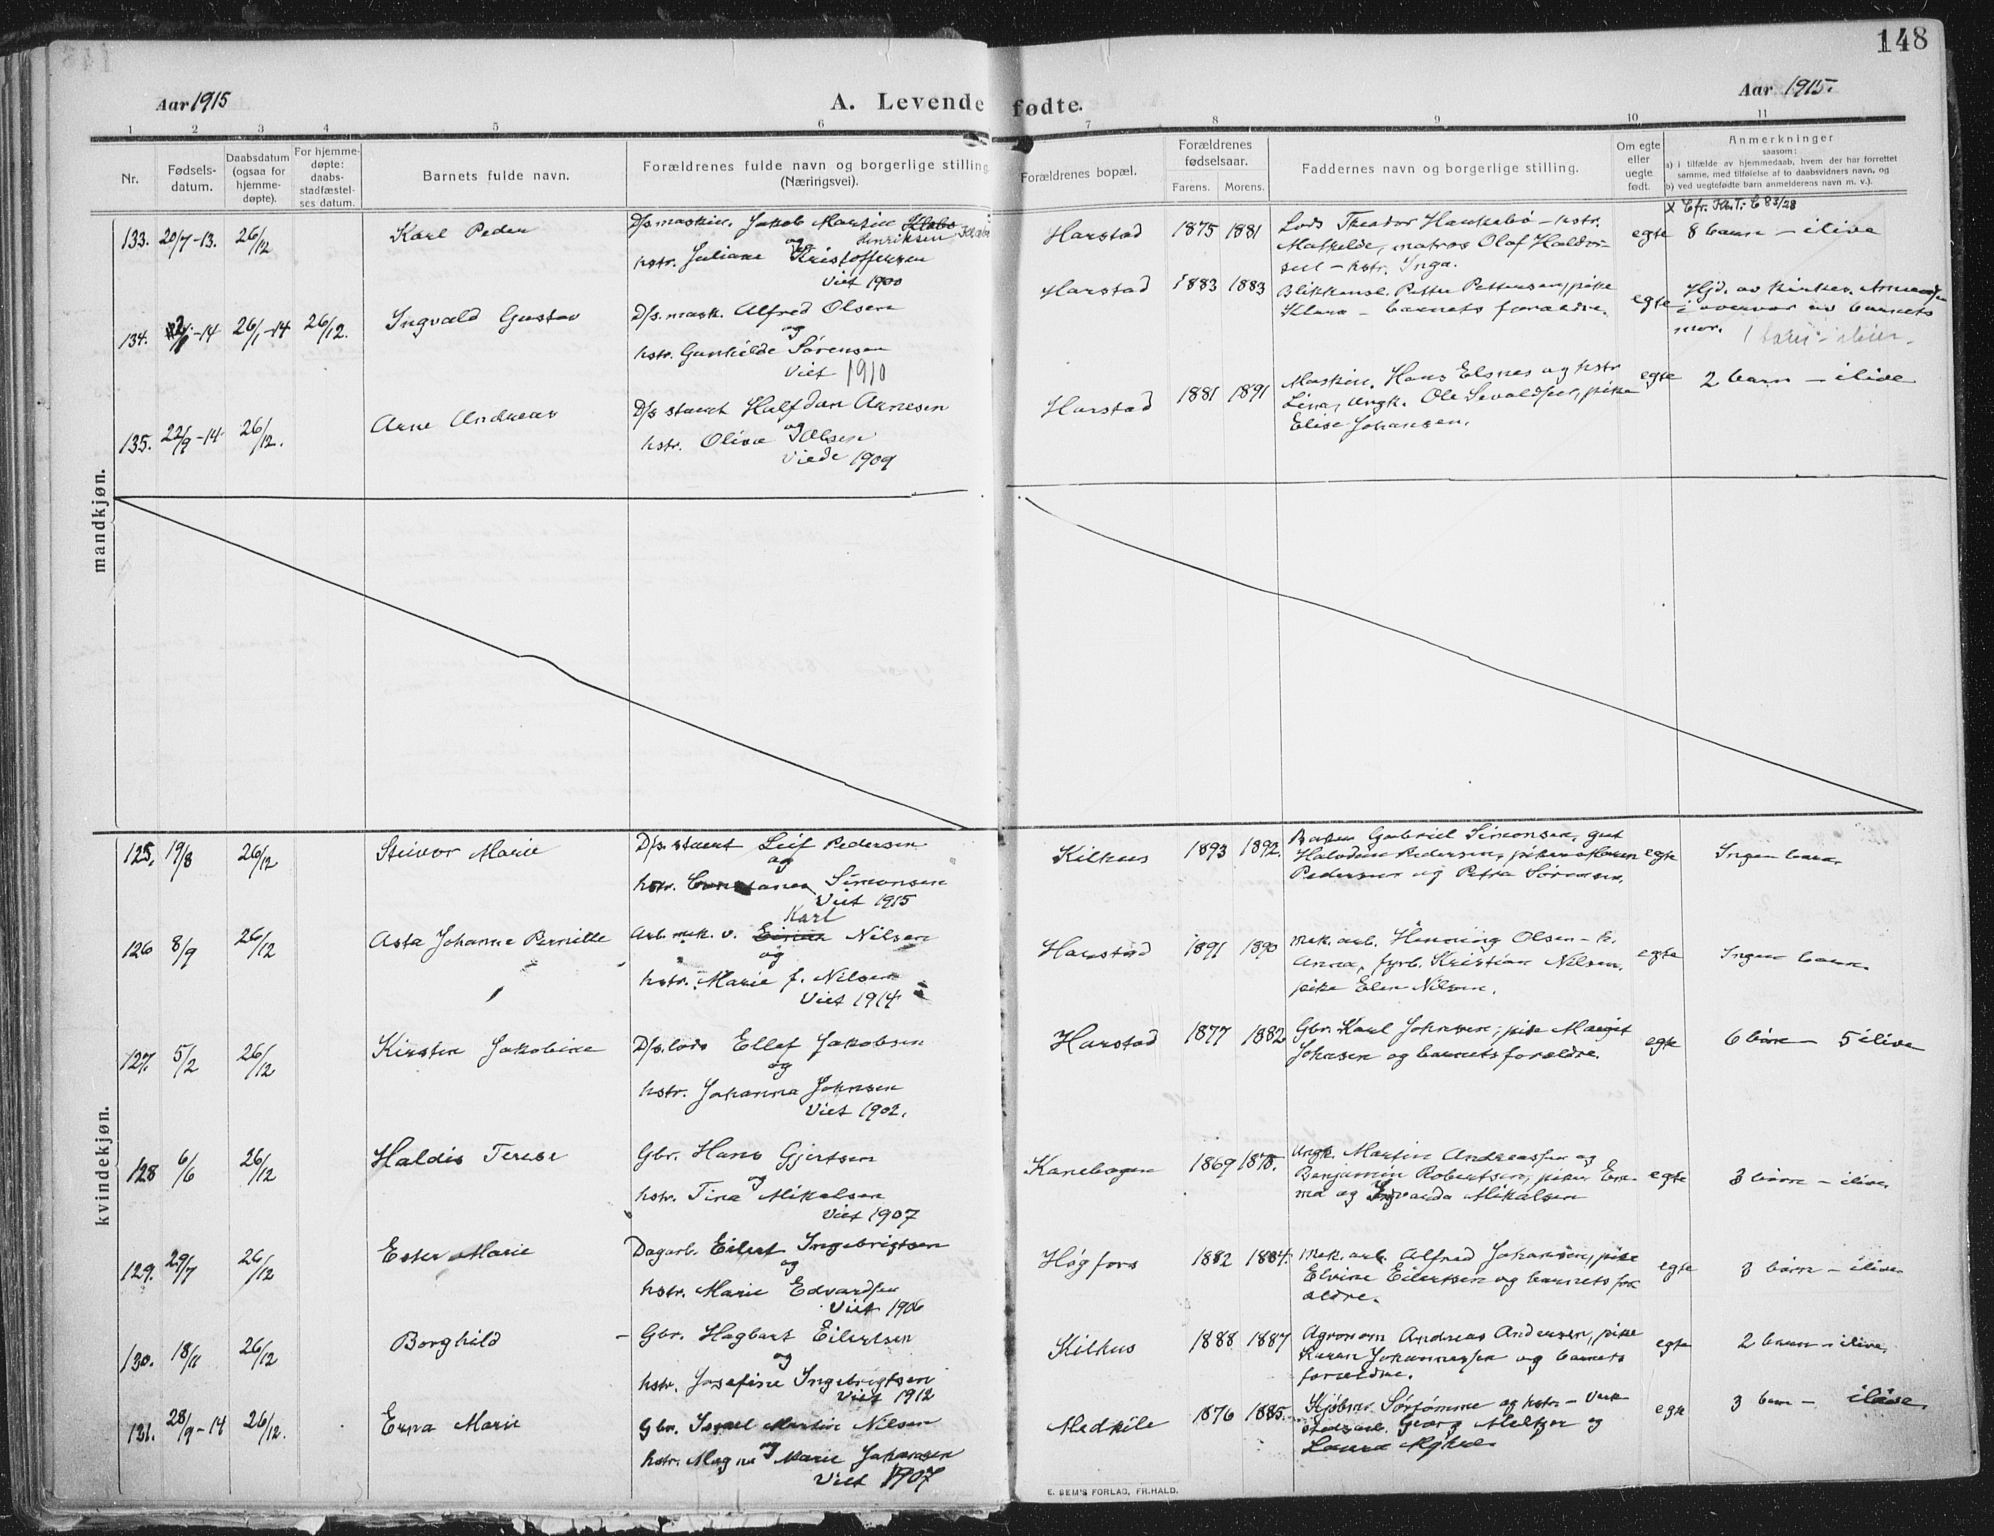 148
Aar 1915
A. Levende fødte.
Aar 1915.
1 2 3 4 5 6 7 8 9 10 11
Nr.
Fødsels-
datum.
Daabsdatum
(ogsaa for
hjemme-
døpte).
For hjemme-
døpte:
daabs-
stadfæstel-
ses datum.
Barnets fulde navn.
Forældrenes fulde navn og borgerlige stilling
(Næringsvei).
Forældrenes bopæl.
Forældrenes
fødselsaar.
Farens. Morens.
Faddernes navn og borgerlige stilling.
Om egte
eller
uegte
født.
Anmerkninger
saasom:
a) i tilfælde av hjemmedaab, hvem der har forrettet
samme, med tilføielse af to daabsvidners navn, og
b) ved uegtefødte barn anmelderens navn m. v.).
mandkjøn.
133. 20/7-13. 26/12 Karl Peder
D/s. maskin. Jakob Martin
Henriksen
og
hstr. Juliane Kristoffersen
Viet 1900
Harstad 1875 1881
Lods Theodor Hankebø - hstr.
Mathilde, matros Olaf Haldor-
sen - hstr. Inga.
egte
8 barn - ilive
134. -14 26/1-14 26/12. Ingvald Gustav
D/s. mask. Alfred Olsen
og
hstr. Gunhilde Sørensen
Viet 1910
Harstad 1883 1883
Blikkensl. Petter Pettersen, pike
Klara - barnets forældre.
egte
Hjd. av kirkes.
i overvær av barnets
mor.
135. 22/9-14 26/12. Arne Andreas
D/s stuert Halfdan Arnesen
og
hstr. Oliva Olsen
Viede 1909
Harstad 1881 1891
Maskin. Hans Elsnes og hstr
Lina, ungk. Ole Sevaldsen, pike
Elise Johansen.
egte
2 barn - ilive
kvindekjøn.
125, 19/8 26/12 Steinvor Marie
D/s. stuert Leif Pedersen
og
hstr. Simonsen
Viet 1915
Kilhus 1893 1892.
Gabriel Simonsen, gut
Halvdan Pedersen, piker Maren
Pedersen og Petra Sørensen.
egte
Ingen barn.
126 8/9 26/12 Asta Johanne Pernille
Karl
Arb. mek. v. Nilsen
og
hstr. Marie f. Nilsen
Viet 1914
Harstad 1891 1890
mek. arb. Henning Olsen - h.
Anna, fyrb. Kristian Nilsen.
pike Elen Nilsen.
egte
Ingen barn.
127. 5/2 26/12 Kirsten Jakobine
D/s. lods Ellef Jakobsen
og
hstr. Johanna Johnsen
Viet 1902.
Harstad 1877 1882
Gbr. Karl Johnsen, pike Margit
Johnsen og barnets forældre.
egte
6 børn - 5 ilive
128 6/6 26/12 Haldis Terese
Gbr. Hans Gjertsen
og
hstr. Tina Mikalsen
Viet 1907
Kanebogen 1869 1878.
Ungk. Martin Andreassen og
Benjamin Robertsen, piker Em-
ma og Mikalsen
egte
3 børn - ilive
129. 29/7 26/12 Ester Marie
Dagarb. Eilert Ingebrigtsen
og
hstr. Marie Edvardsen
Viet 1906
Høgfors 1882 1884.
Mek. arb. Alfred Johansen, pike
Elvine Eilertsen og barnets for-
ældre.
egte
3 børn - ilive
130. 18/11 26/12 Borghild
Gbr. Hagbart Eilertsen
og
hstr. Josefine Ingebrigtsen
Viet 1912
Kilhus 1888 1887
Agronom Andreas Andersen, pike
Karen Johannessen og barnets
forældre.
egte
2 barn - ilive.
131. 28/9-14 26/12. Erna Marie
Gbr. Israel Martin Nilsen
og
hstr. Magna Marie Johansen
Viet 1907
Medkile 1876 1885.
Kjøbm. Sørtømme og hstr - verk
Georg Meltzer og
Laura
egte
3 barn - ilive.
E. SEM'S FORLAG, FR.HALD.